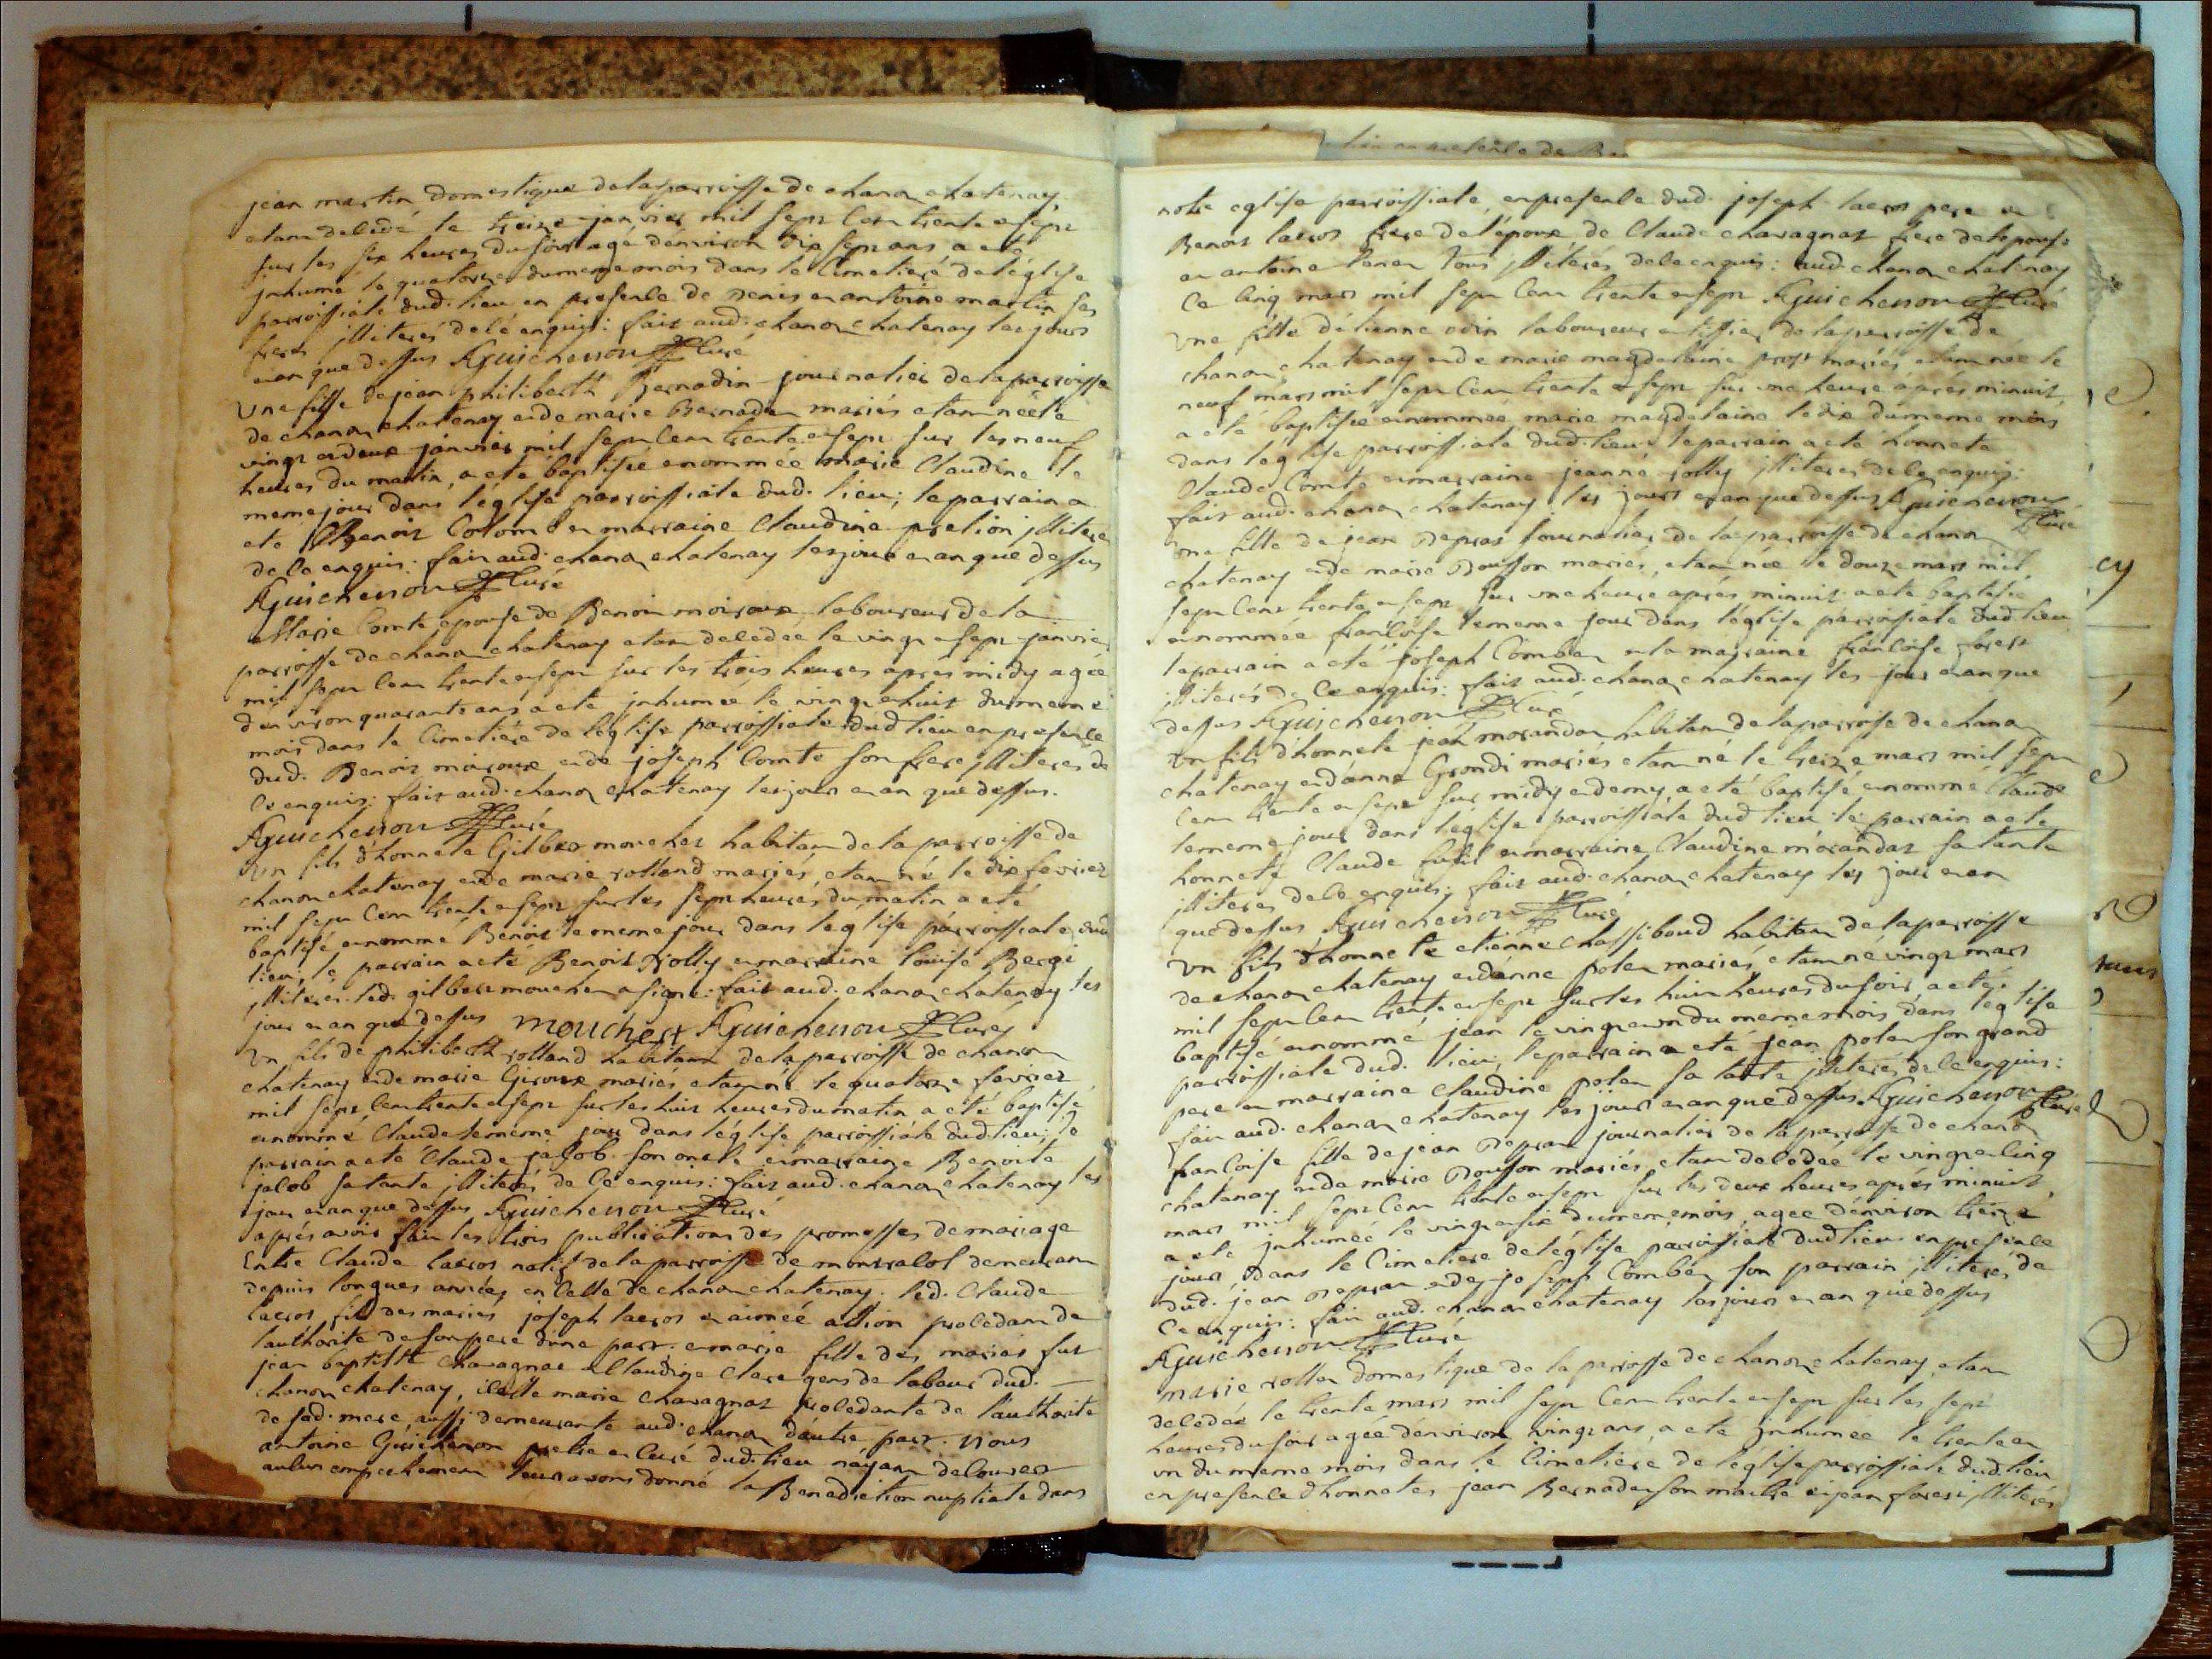 jean martin domestique de la parroisse de chanon chatenay
etant decedé le treize janvier mil sept cent trente et sept
sur les six heures du soir agé d'environ dix sept ans a eté
inhumé le quatorze du meme mois dans le Cimetiere de l'église
parroissiale dud. lieu en presence de denis et antoine martin ses
freres illiterés de ce enquis: fait aud. chanon chatenay les jours
et an que dessus AGuichenon Curé
Une fille de jean philiberth Bernadin journalier de la parroisse
de chanon chatenay et de marie Bernadin mariés etant née le
vingt et deux janvier mil sept cent trente et sept sur les neuf
heures du matin, a eté baptisée et nommée marie Claudine le
meme jour dans l'église parroissiale dud. lieu; le parrain a
eté Benoit Colomb et marraine Claudine prelion illiterés
de ce enquis: fait aud. chanon chatenay les jour et an que dessus
AGuichenon Curé
Marie Comte epouse de Benoit moiroux laboureur de la
parroisse de chanon chatenay etant decedée le vingt et sept janvier
mil sept cent trente et sept sur les trois heures apres midy agée
d'environ quarante ans a eté inhumée le vingt et huit du meme
mois dans le Cimetiére de l'église parroissiale dud lieu en presence
dud. Benoit moiroux et de joseph Comte son frere illiterés de
ce enquis: fait aud. chanon chatenay les jours et an que dessus.
AGuichenon Curé
Un fils d'honnete Gilbert mouchet habitant de la parroisse de
chanon chatenay et de marie rolland mariés, etant né le dix fevrier
mil sept cent trente et sept sur les sept heures du matin a eté
baptisé et nommé Benoit le meme jour dans l'église parroissiale dud
lieu; le parrain a eté Benoit Jolly et marraine louise Bergé
illiterés. led. gilbert mouchet a signé: fait aud. chanon chatenay les
jour et an que dessus mouchet AGuichenon Curé
Un fils de philiberth rolland habitant de la parroisse de chanon
chatenay et de marie Giroux mariés etant né le quatorze fevrier
mil sept cent trente et sept sur les huit heures du matin a eté baptisé
et nommé Claude le meme jour dans l'église parroissiale dud lieu; le
parrain a eté Claude jacob son oncle et marraine Benoite
jacob sa tante illiterés de ce enquis: fait aud. chanon chatenay les
jour et an que dessus AGuichenon Curé
aprés avoir fait les trois publications des promesses de mariage
Entre Claude lacros natif de la parroisse de demeurant
depuis longues années en celle de chanon chatenay. led. Claude
lacros fils des mariés joseph lacros et aimée allion procedant de
l'authorité de son pere d'une part. et marie fille des mariés fut
jean baptiste chavagnat et Claudine Clere gens de labeur dud.
chanon chatenay, icelle marie chavagnat procedante de l'authorité
de sad. mere, aussi demeurante aud. chanon d'autre part. Nous
antoine Guichenon pretre et curé dud. lieu n'ayant decouvert
aucun empechement leur avons donné la Benediction nuptiale dans
notre eglise parroissiale, en presence dud. joseph lacros pere et
Benoit lacros frere de l'époux de Claude chavagnat frere de l'epouse
et antoine tous illiterés de ce enquis: aud. chanon chatenay
Ce cinq mars mil sept cent trente et sept AGuichenon Curé
Une fille d'etienne odin laboureur et tissier de la parroisse de
chanon chatenay et de marie magdelaine prost mariés etant née le
neuf mars mil sept cent trente et sept sur une heure aprés minuit,
a eté baptisée et nommée marie magdelaine le dix du meme mois
dans l'église parroissiale dud. lieu le parrain a eté honnete
Claude Comte et marraine jeanne jolly illiterés de ce enquis:
fait aud. chanon chatenay les jours et an que dessus AGuichenon
Curé
Une fille de jean Depras journalier de la parroisse de chanon
chatenay et de marie Bouffon mariés, etant née le douze mars mil
sept cent trente et sept sur une heure aprés minuit a eté baptisée
et nommée francoise le meme jour dans l'église parroissiale dud lieu
le parrain a eté joseph Combet et la marraine francoise forest
illiterés de ce enquis: fait aud. chanon chatenay les jour et an que
dessus AGuichenon Curé
Un fils d'honnete jean morandat habitant de la parroisse de chanon
chatenay et d'anne Grondi mariés etant né le treize mars mil sept
cent trente et sept sur midy et demy, a eté baptisé et nommé Claude
le meme jour dans l'église parroissiale dud lieu le parrain a eté
honnete Claude et marraine Claudine morandat sa tante
illiterés de ce enquis; fait aud. chanon chatenay les jour et an
que dessus AGuichenon Curé
Un fils d'honnete etienne Chassiboud habitant de la parroisse
de chanon chatenay et d'anne polet mariés, etant né vingt mars
mil sept cent trente et sept sur les huit heures du soir, a eté
baptisé et nommé jean le vingt et un du meme mois dans l'église
parroissiale dud. lieu; le parrain a eté jean polet son grand
pere et marraine Claudine polet sa tante illiterés de ce enquis:
fait aud. chanon chatenay les jours et an que dessus AGuichenon Curé
francoise fille de jean Depras journalier de la parroisse de chanon
chatenay et de marie Bouffon mariés, etant decedée le vingt et cinq
mars mil sept cent trente et sept sur les deux heures aprés minuit,
a eté inhumée le vingt et six du meme mois, agée d'environ treize
jours, dans le Cimetiere de l'église parroissiale dud lieu en presence
dud. jean Depras et de joseph Combet son parrain illiterés de
ce enquis: fait aud. chanon chatenay les jours et an que dessus
AGuichenon Curé
Marie rollet domestique de la parroisse de chanon chatenay, etant
decedée le trente mars mil sept cent trente et sept sur les sept
heures du soir agée d'environ vingt ans, a eté inhumée le trente et
un du meme mois dans le Cimetiere de l'église parroissiale dud. lieu
en presence d'honnetes jean Bernadet son maitre et jean forest, illiterés